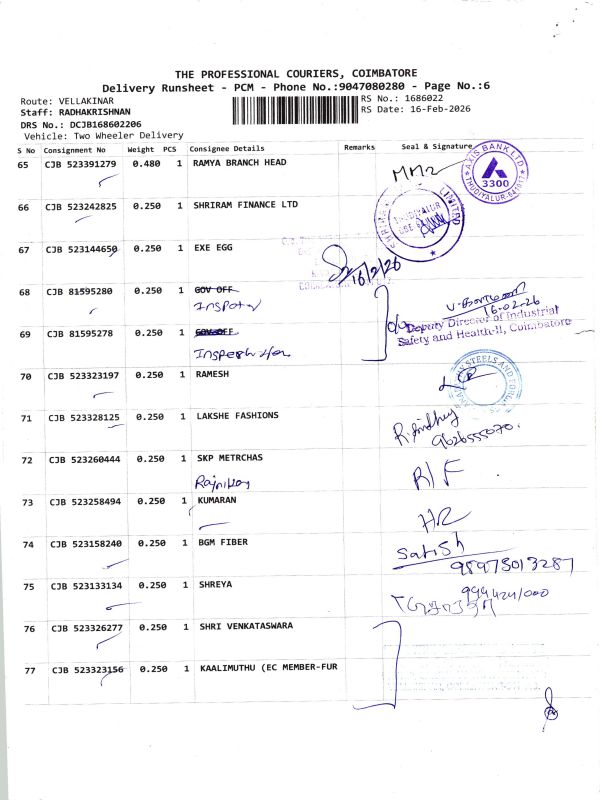 THE PROFESSIONAL COURIERS, COIMBATORE
Delivery Runsheet - PCM - Phone No.:9047080280 - Page No.:6
Route: VELLAKINAR
RS No.: 1686022
Staff: RADHAKRISHNAN
RS Date: 16-Feb-2026
DRS No.: DCJB168602206
Vehicle: Two Wheeler Delivery
S No Consignment No Weight PCS Consignee Details Remarks Seal & Signature
65 CJB 523391279 0.480 1 RAMYA BRANCH HEAD
AXIS BANK LTD
3300
THUDIYALUR-641017
66 CJB 523242825 0.250 1 SHRIRAM FINANCE LTD
LIMITED
67 CJB 523144650 0.250 1 EXE EGG
16/2/26
68 CJB 81595280 0.250 1 GOV OFF
16-02-26
Deputy Director of Industrial
Safety and Health-II, Coimbatore
69 CJB 81595278 0.250 1 GOV OFF
70 CJB 523323197 0.250 1 RAMESH
STEELS AND
71 CJB 523328125 0.250 1 LAKSHE FASHIONS
9626555070.
72 CJB 523260444 0.250 1 SKP METRCHAS
R/F
73 CJB 523258494 0.250 1 KUMARAN
HR
74 CJB 523158240 0.250 1 BGM FIBER
Satish
75 CJB 523133134 0.250 1 SHREYA
76 CJB 523326277 0.250 1 SHRI VENKATASWARA
77 CJB 523323156 0.250 1 KAALIMUTHU (EC MEMBER-FUR